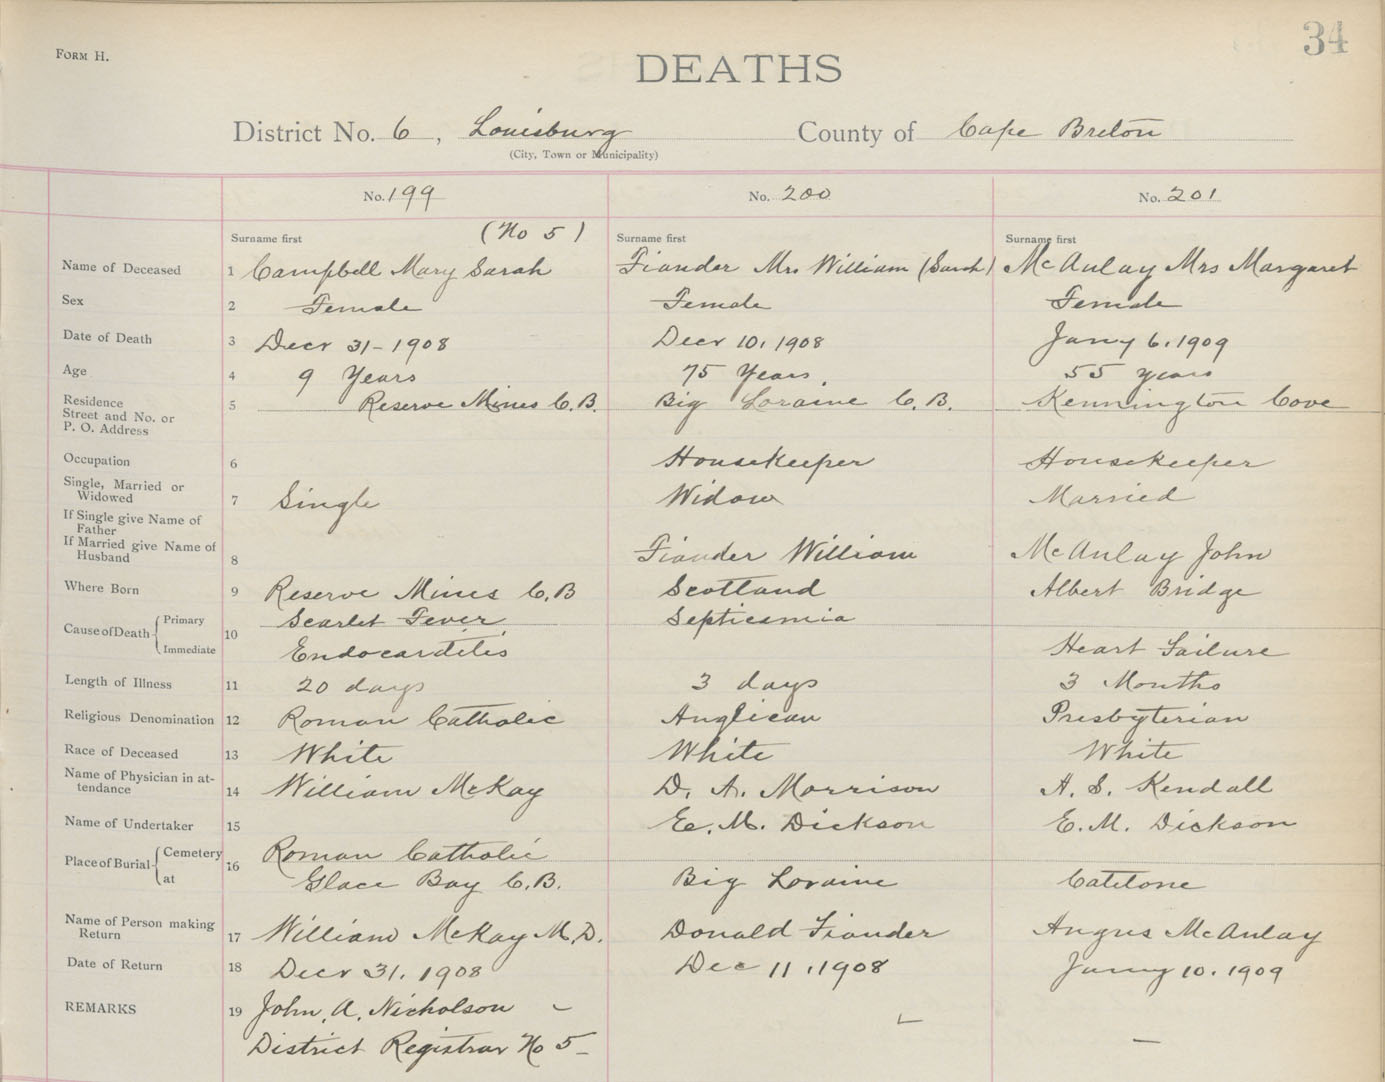 34
FORM H.
DEATHS
District No. 6, Louisburg County of Cape Breton
(City, Town or Municipality)
No. 199 No. 200 No. 201
Surname first (No 5) Surname first Surname first
Name of Deceased 1 Campbell Mary Sarah Fiander Mrs William (Sarah) McAulay Mrs Margaret
Sex 2 Female Female Female
Date of Death 3 Decr 31-1908 Decr 10, 1908 Jany 6, 1909
Age 4 9 Years 75 Years, 55 years
Residence
Street and No. or
P. O. Address 5 Reserve Mines C.B. Big Loraine C.B. Kennington Cove
Occupation 6 Housekeeper Housekeeper
Single, Married or
Widowed 7 Single Widow Married
If Single give Name of
Father
If Married give Name of
Husband 8 Fiander William McAulay John
Where Born 9 Reserve Mines C.B Scotland Albert Bridge
Cause of Death Primary 10 Scarlet Fever Septicamia
Immediate Endocarditis Heart Failure
Length of Illness 11 20 days 3 days 3 Months
Religious Denomination 12 Roman Catholic Anglican Presbyterian
Race of Deceased 13 White White White
Name of Physician in at-
tendance 14 William McKay D. A. Morrison A. S. Kendall
Name of Undertaker 15 E. M. Dickson E. M. Dickson
Place of Burial Cemetery 16 Roman Catholic
at Glace Bay C.B. Big Loraine Catalone
Name of Person making
Return 17 William McKay M.D. Donald Fiander Angus McAulay
Date of Return 18 Decr 31, 1908 Dec 11, 1908 Jany 10, 1909
REMARKS 19 John. A. Nicholson -
District Registrar No 5 -